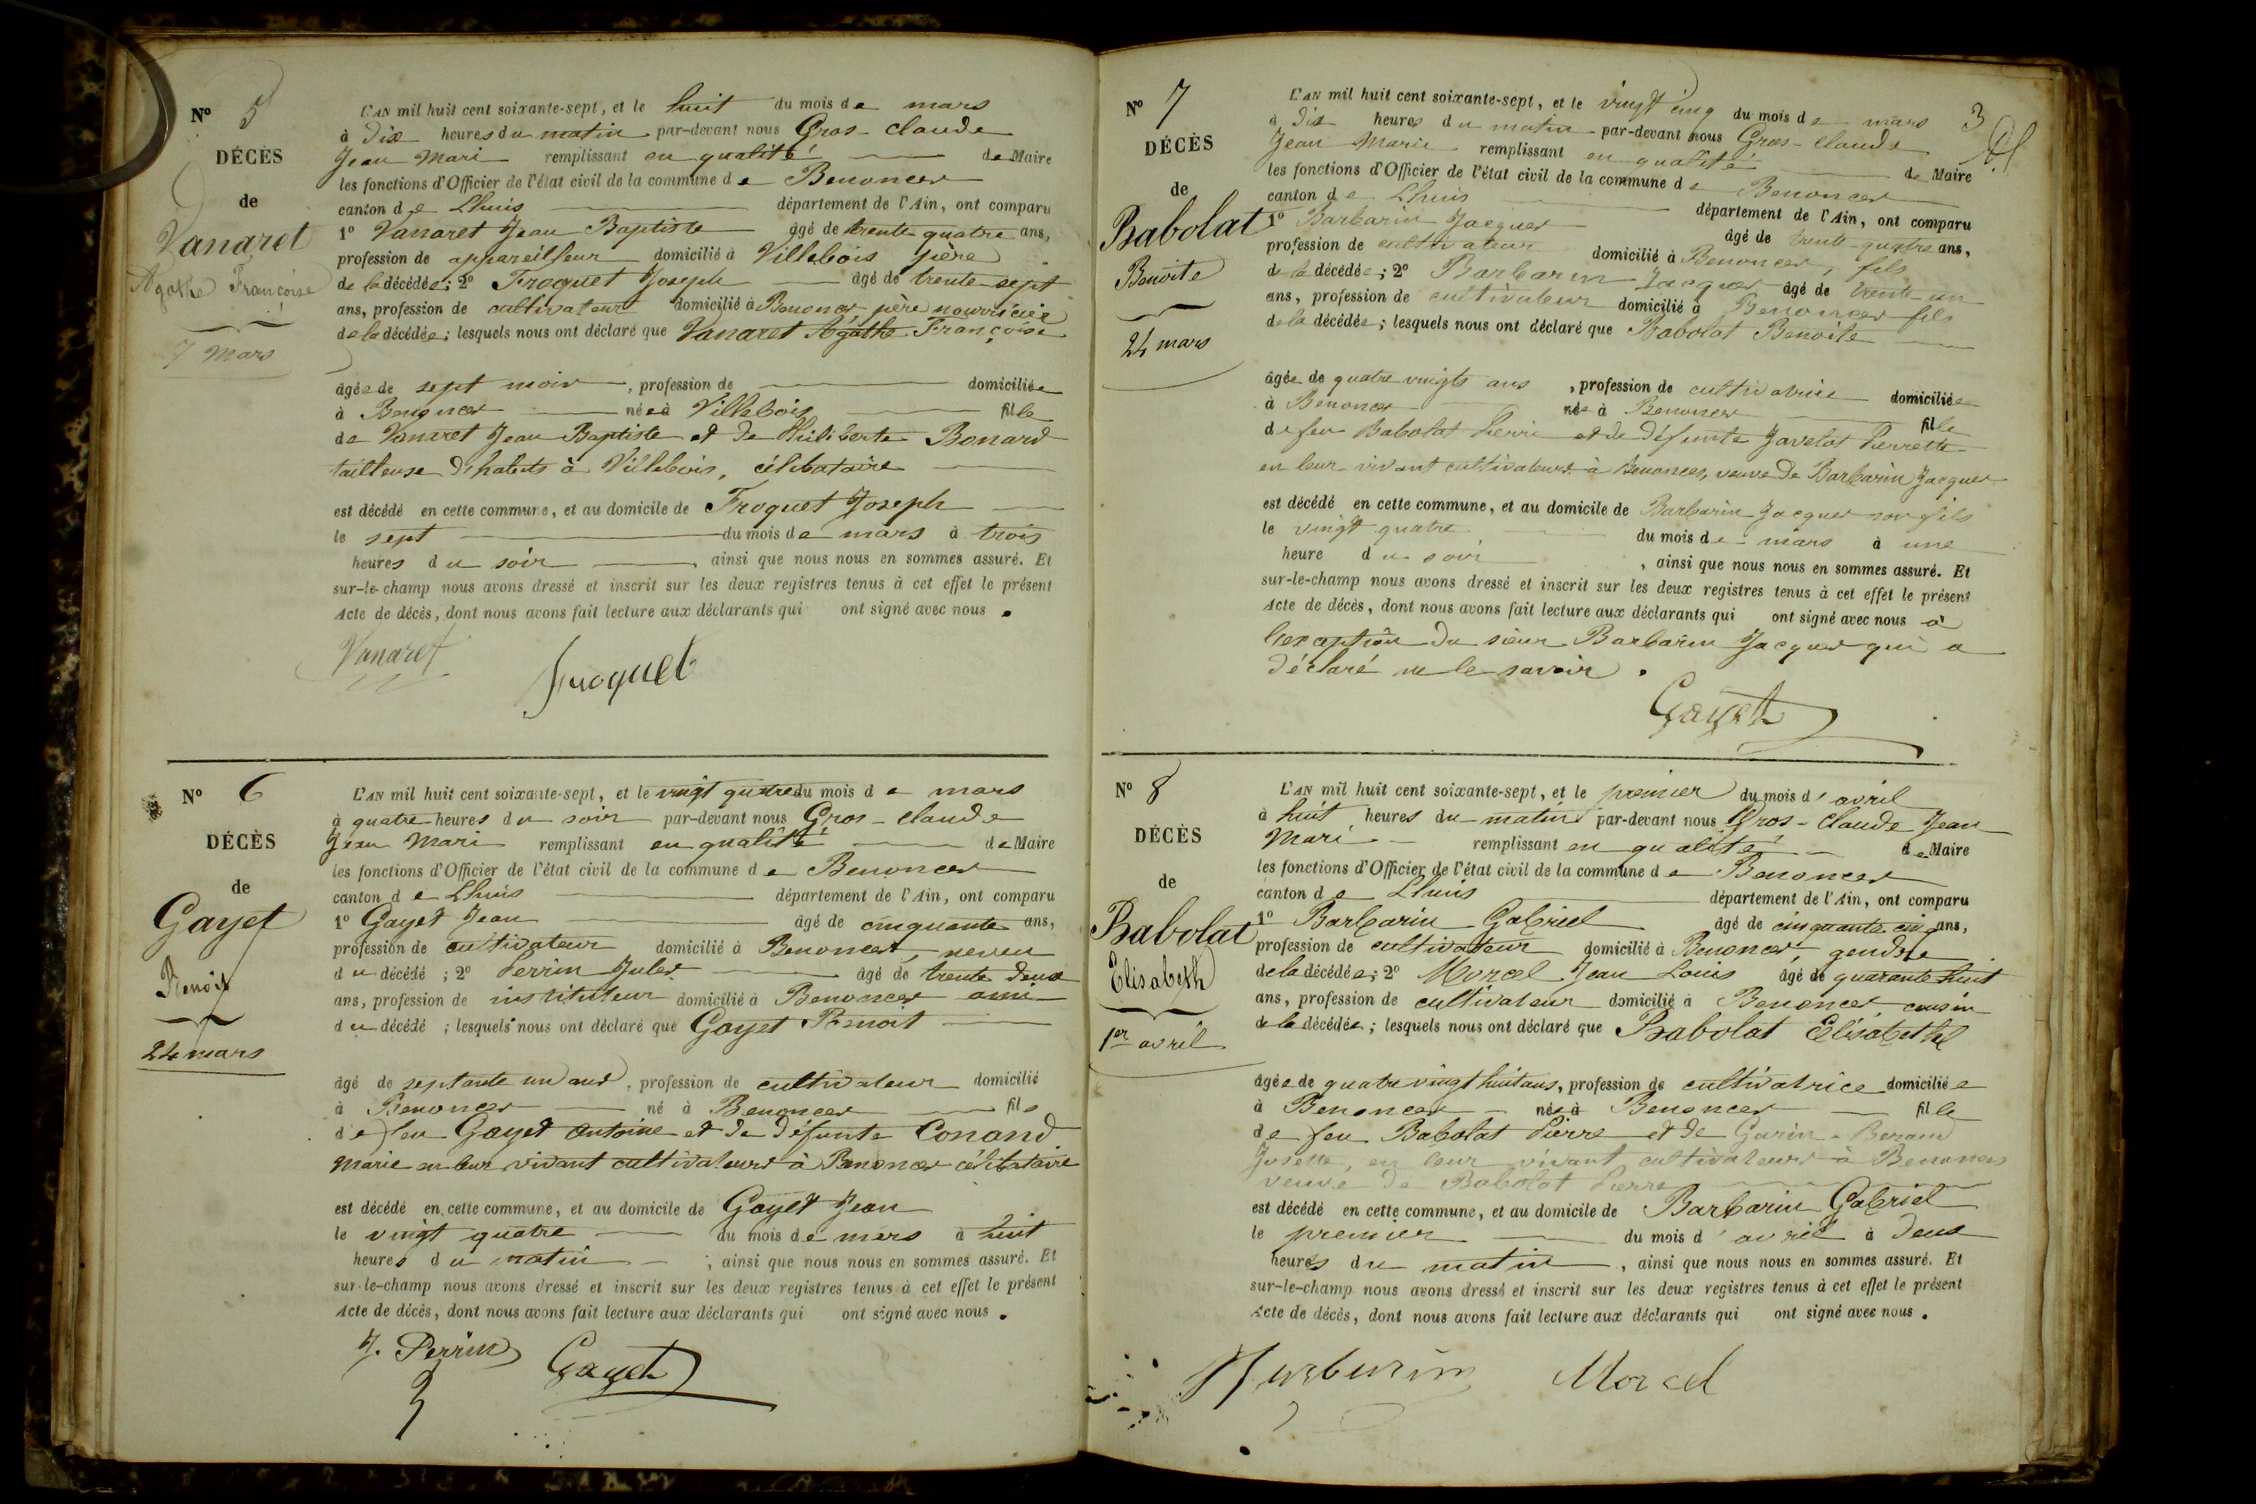 Nº 5
DÉCÈS
de
Vanaret
Agathe Françoise
7 mars
L'AN mil huit cent soixante-sept, et le huit du mois de mars
à dix heures du matin par-devant nous Gros-Claude
Jean Mari remplissant en qualité de Maire
les fonctions d'Officier de l'état civil de la commune de Benonces
canton de Lhuis département de l'Ain, ont comparu
1º Vanaret Jean Baptiste âgé de trente quatre ans,
profession de appareilleur domicilié à Villebois père
de la décédée; 2º Froquet Joseph âgé de trente-sept
ans, profession de cultivateur domicilié à Benonces, père nourricier
de la décédée; lesquels nous ont déclaré que Vanaret Agathe Françoise
âgée de sept mois, profession de domiciliée
à Benonces née à Villebois fille
de Vanaret Jean Baptiste et de Philiberte Bonard
tailleuse d'habits à Villebois, célibataire
est décédé en cette commune, et au domicile de Froquet Joseph
le sept du mois de mars à trois
heures du soir, ainsi que nous nous en sommes assuré. Et
sur-le-champ nous avons dressé et inscrit sur les deux registres tenus à cet effet le présent
Acte de décès, dont nous avons fait lecture aux déclarants qui ont signé avec nous.
Vanaret
Froquet
Nº 6
DÉCÈS
de
Gayet
Benoit
24 mars
L'AN mil huit cent soixante-sept, et le vingt quatre du mois de mars
à quatre heures du soir par-devant nous Gros-Claude
Jean Mari remplissant en qualité de Maire
les fonctions d'Officier de l'état civil de la commune de Benonces
canton de Lhuis département de l'Ain, ont comparu
1º Gayet Jean âgé de cinquante ans,
profession de cultivateur domicilié à Benonces, neveu
du décédé; 2º Perrin Jules âgé de trente deux
ans, profession de instituteur domicilié à Benonces ami
du décédé; lesquels nous ont déclaré que Gayet Benoit
âgé de septante un ans, profession de cultivateur domicilié
à Benonces né à Benonces fils
de feu Gayet Antoine et de défunte Conand
Marie en leur vivant cultivateurs à Benonces célibataire
est décédé en cette commune, et au domicile de Gayet Jean
le vingt quatre du mois de mars à huit
heures du matin; ainsi que nous nous en sommes assuré. Et
sur-le-champ nous avons dressé et inscrit sur les deux registres tenus à cet effet le présent
Acte de décès, dont nous avons fait lecture aux déclarants qui ont signé avec nous.
J. Perrin Gayet
3
Nº 7
DÉCÈS
de
Babolat
Benoite
24 mars
L'AN mil huit cent soixante-sept, et le vingt cinq du mois de mars
à dix heures du matin par-devant nous Gros-Claude
Jean Marie remplissant en qualité de Maire
les fonctions d'Officier de l'état civil de la commune de Benonces
canton de Lhuis département de l'Ain, ont comparu
1º Barbarin Jacques âgé de trente-quatre ans,
profession de cultivateur domicilié à Benonces, fils
de la décédée; 2º Barbarin Jacques âgé de trente-un
ans, profession de cultivateur domicilié à Benonces fils
de la décédée; lesquels nous ont déclaré que Babolat Benoite
âgée de quatre vingts ans, profession de cultivatrice domiciliée
à Benonces née à Benonces fille
de feu Babolat Pierre et de défunte Javelot Pierrette
en leur vivant cultivateurs à Benonces, veuve de Barbarin Jacques
est décédé en cette commune, et au domicile de Barbarin Jacques son fils
le vingt quatre du mois de mars à une
heure du soir, ainsi que nous nous en sommes assuré. Et
sur-le-champ nous avons dressé et inscrit sur les deux registres tenus à cet effet le présent
Acte de décès, dont nous avons fait lecture aux déclarants qui ont signé avec nous à
l'exception du sieur Barbarin Jacques qui a
déclaré ne le savoir.
Gayet
Nº 8
DÉCÈS
de
Babolat
Elisabeth
1er avril
L'AN mil huit cent soixante-sept, et le premier du mois d'avril
à huit heures du matin par-devant nous Gros-Claude Jean
Mari remplissant en qualité de Maire
les fonctions d'Officier de l'état civil de la commune de Benonces
canton de Lhuis département de l'Ain, ont comparu
1º Barbarin Gabriel âgé de cinquante cinq ans,
profession de cultivateur domicilié à Benonces, gendre
de la décédée; 2º Morcel Jean Louis âgé de quarante huit
ans, profession de cultivateur domicilié à Benonces cousin
de la décédée; lesquels nous ont déclaré que Babolat Elisabeth
âgée de quatre vingt huit ans, profession de cultivatrice domiciliée
à Benonces née à Benonces fille
de feu Babolat Pierre et de Garin-Beraud
Josette, en leur vivant cultivateurs à Benonces
veuve de Babolat Pierre
est décédé en cette commune, et au domicile de Barbarin Gabriel
le premier du mois d'avril à deux
heures du matin, ainsi que nous nous en sommes assuré. Et
sur-le-champ nous avons dressé et inscrit sur les deux registres tenus à cet effet le présent
Acte de décès, dont nous avons fait lecture aux déclarants qui ont signé avec nous.
Barbarin Morcel